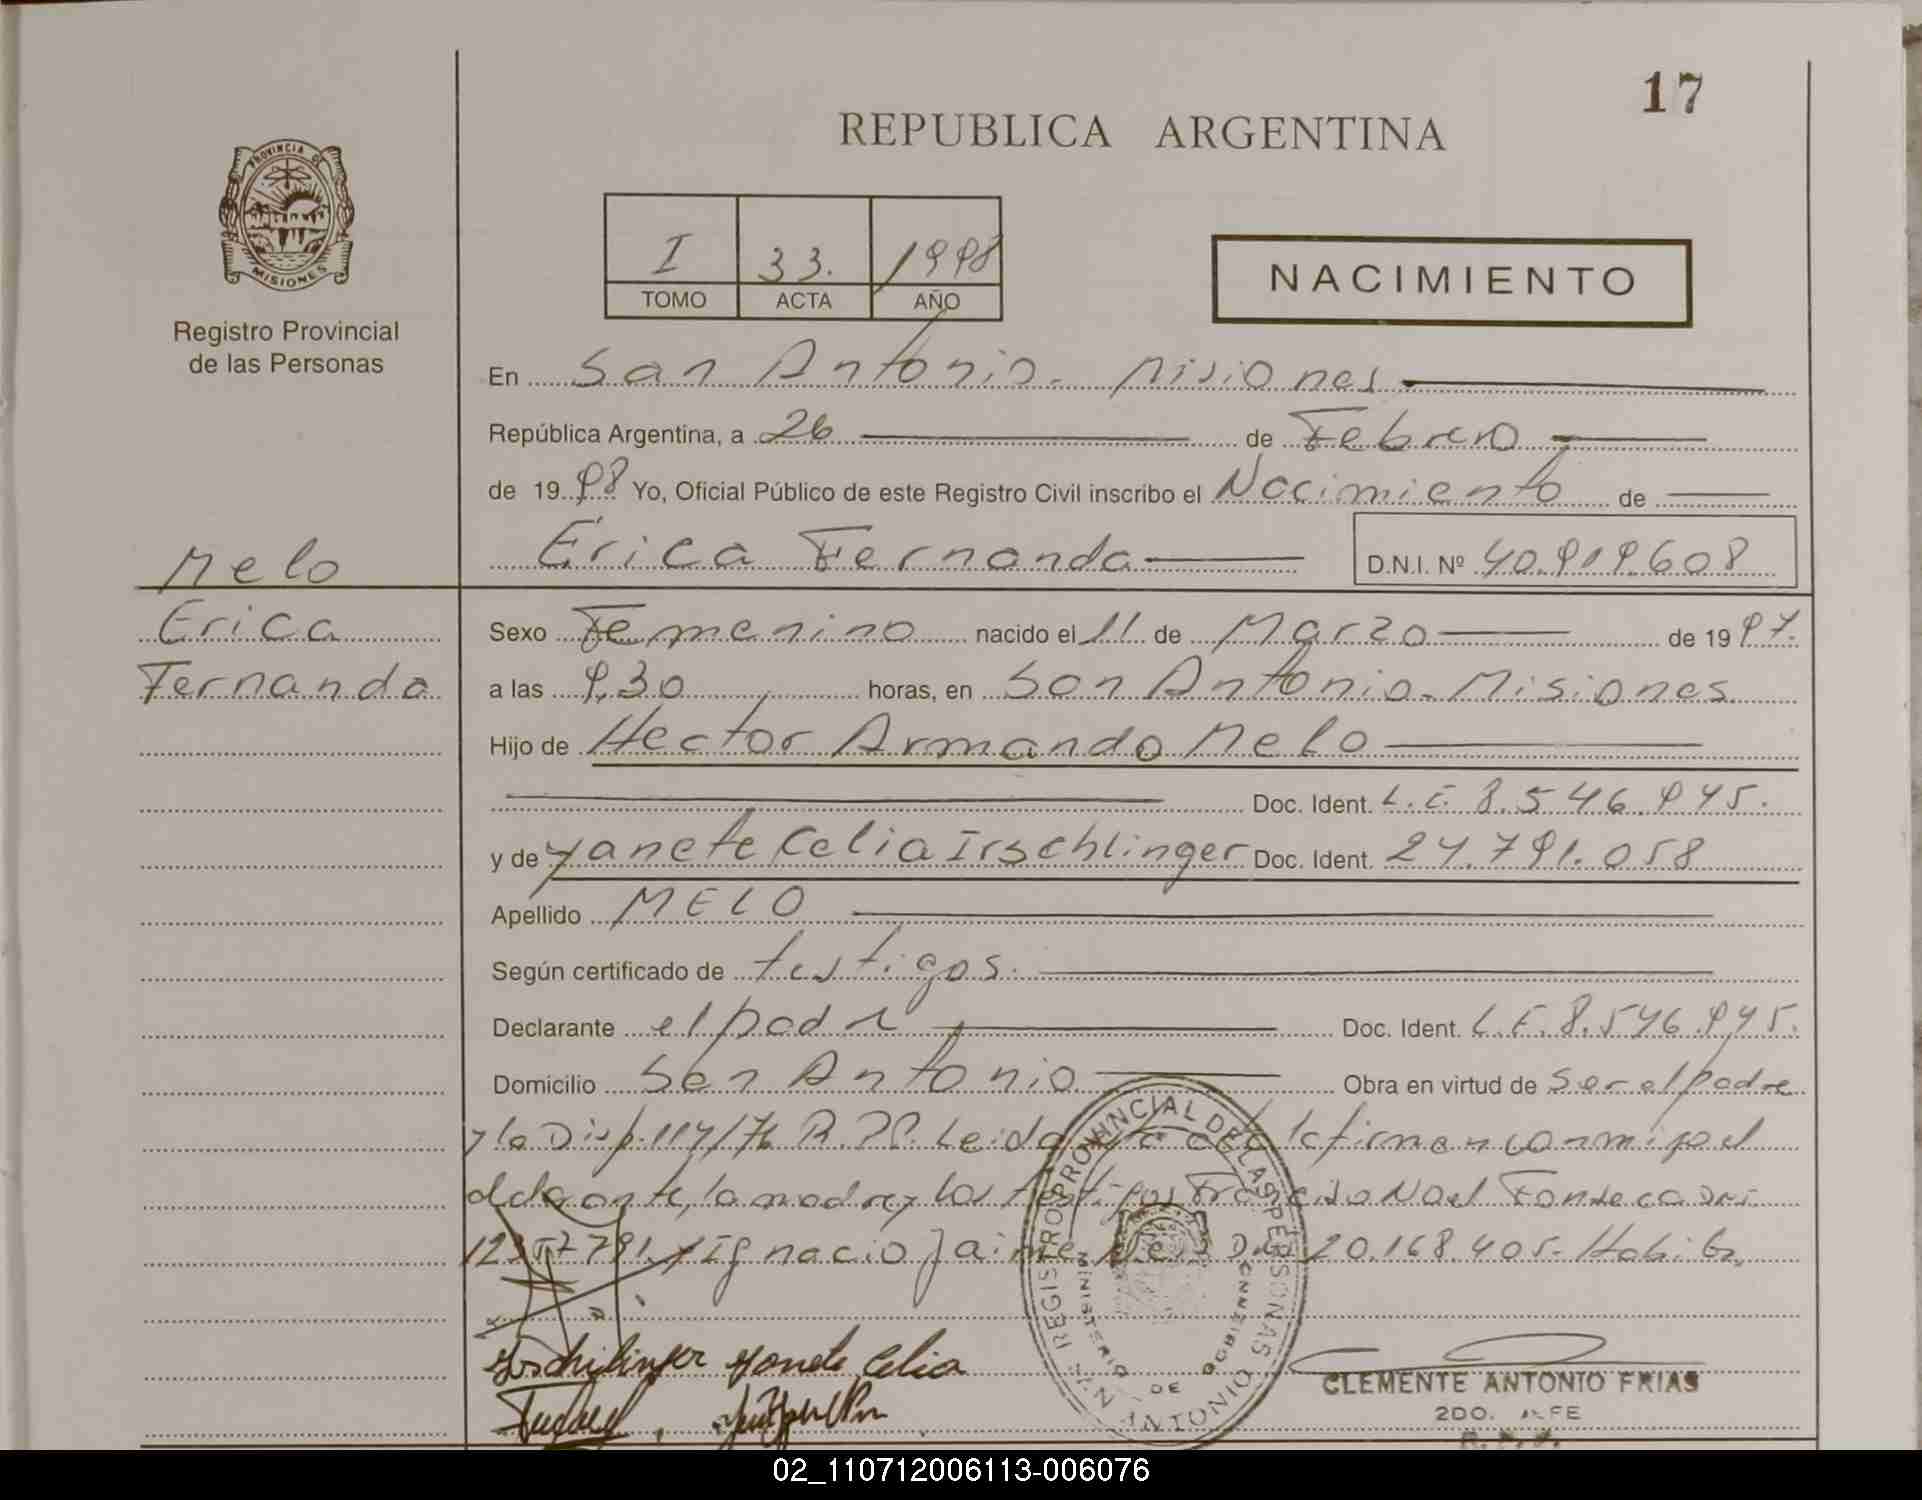 17
REPUBLICA ARGENTINA
PROVINCIA DE
MISIONES
Registro Provincial
de las Personas
I 33. 1998
TOMO ACTA AÑO
NACIMIENTO
En San Antonio - Misiones
República Argentina, a 26 de Febrero
de 1998 Yo, Oficial Público de este Registro Civil inscribo el Nacimiento de
Melo
Erica Fernanda D.N.I. Nº 40.919.608
Erica
Fernanda
Sexo Femenino nacido el 11 de Marzo de 1997.
a las 9,30 horas, en San Antonio - Misiones
Hijo de Hector Armando Melo
Doc. Ident. L.E. 8.546.945.
y de Yanete Celia Irschlinger Doc. Ident. 24.791.058
Apellido MELO
Según certificado de testigos.
Declarante el padre Doc. Ident. L.E. 8.546.945.
Domicilio San Antonio Obra en virtud de ser el padre
y la Disp. 114/76 R.P.P. Leida el acta la firman conmigo el
ddo ante, la madre y los testigos Francisco Noel Fonseca DNI
y Ignacio Jaime DNI 20.168.405. Habiles
Irschlinger Yanete Celia
REGISTRO PROVINCIAL DE LAS PERSONAS
MINISTERIO DE GOBIERNO
SAN ANTONIO
CLEMENTE ANTONIO FRIAS
2DO. JEFE
02_110712006113-006076